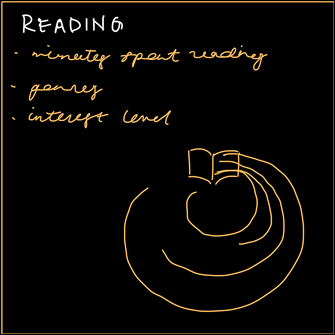 READING
- minutes spent reading
- genres
- interest level